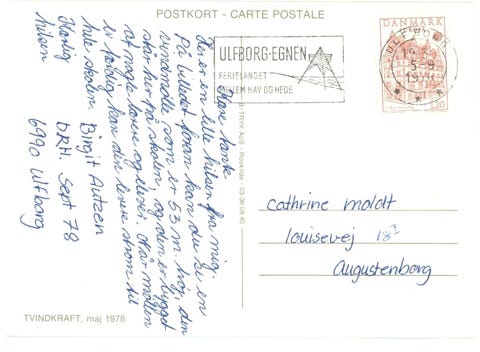 POSTKORT - CARTE POSTALE
ULFBORG-EGNEN
FERIELANDET
MELLEM HAV OG HEDE
ULFBORG
5-9
DANMARK
120
Kære tante
Her er en lille hilsen fra mig.
På billedet foran kan du se en
vindmølle som er 53 m høj, den
står her på skolen, og den er bygget
af nogle lærere og elever. Når møllen
er færdig kan den levere strøm til
hele skolen. Birgit Autzen
Kærlig DRH. Sept 78
hilsen 6990 Ulfborg
-TRYK ApS - Roskilde - 03-36 08 40
Cathrine Moldt
Louisevej
Augustenborg
TVINDKRAFT, maj 1978.